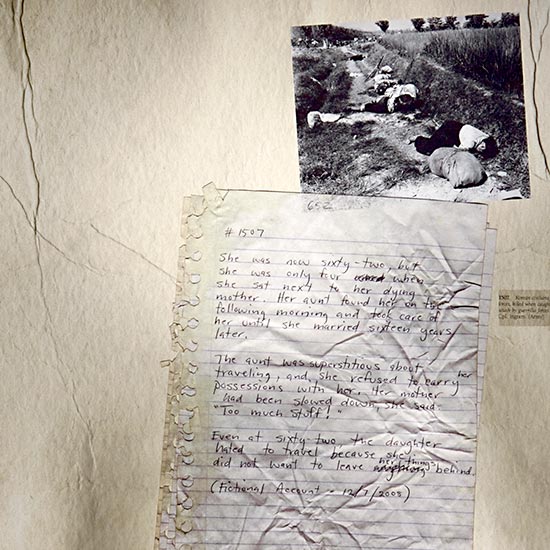 652
# 1507
She was now sixty-two, but
she was only four when
she sat next to her dying
mother. Her aunt found her on the
following morning and took care of
her until she married sixteen years
later.
The aunt was superstitious about
traveling, and, she refused to carry her
possessions with her. Her mother
had been slowed down, she said.
"Too much stuff!"
Even at sixty-two, the daughter
hated to travel because she
did not want to leave her things behind.
(Fictional Account - 12/7/2005)
Korean civilians
killed when caught
by guerrilla forces
(Army)